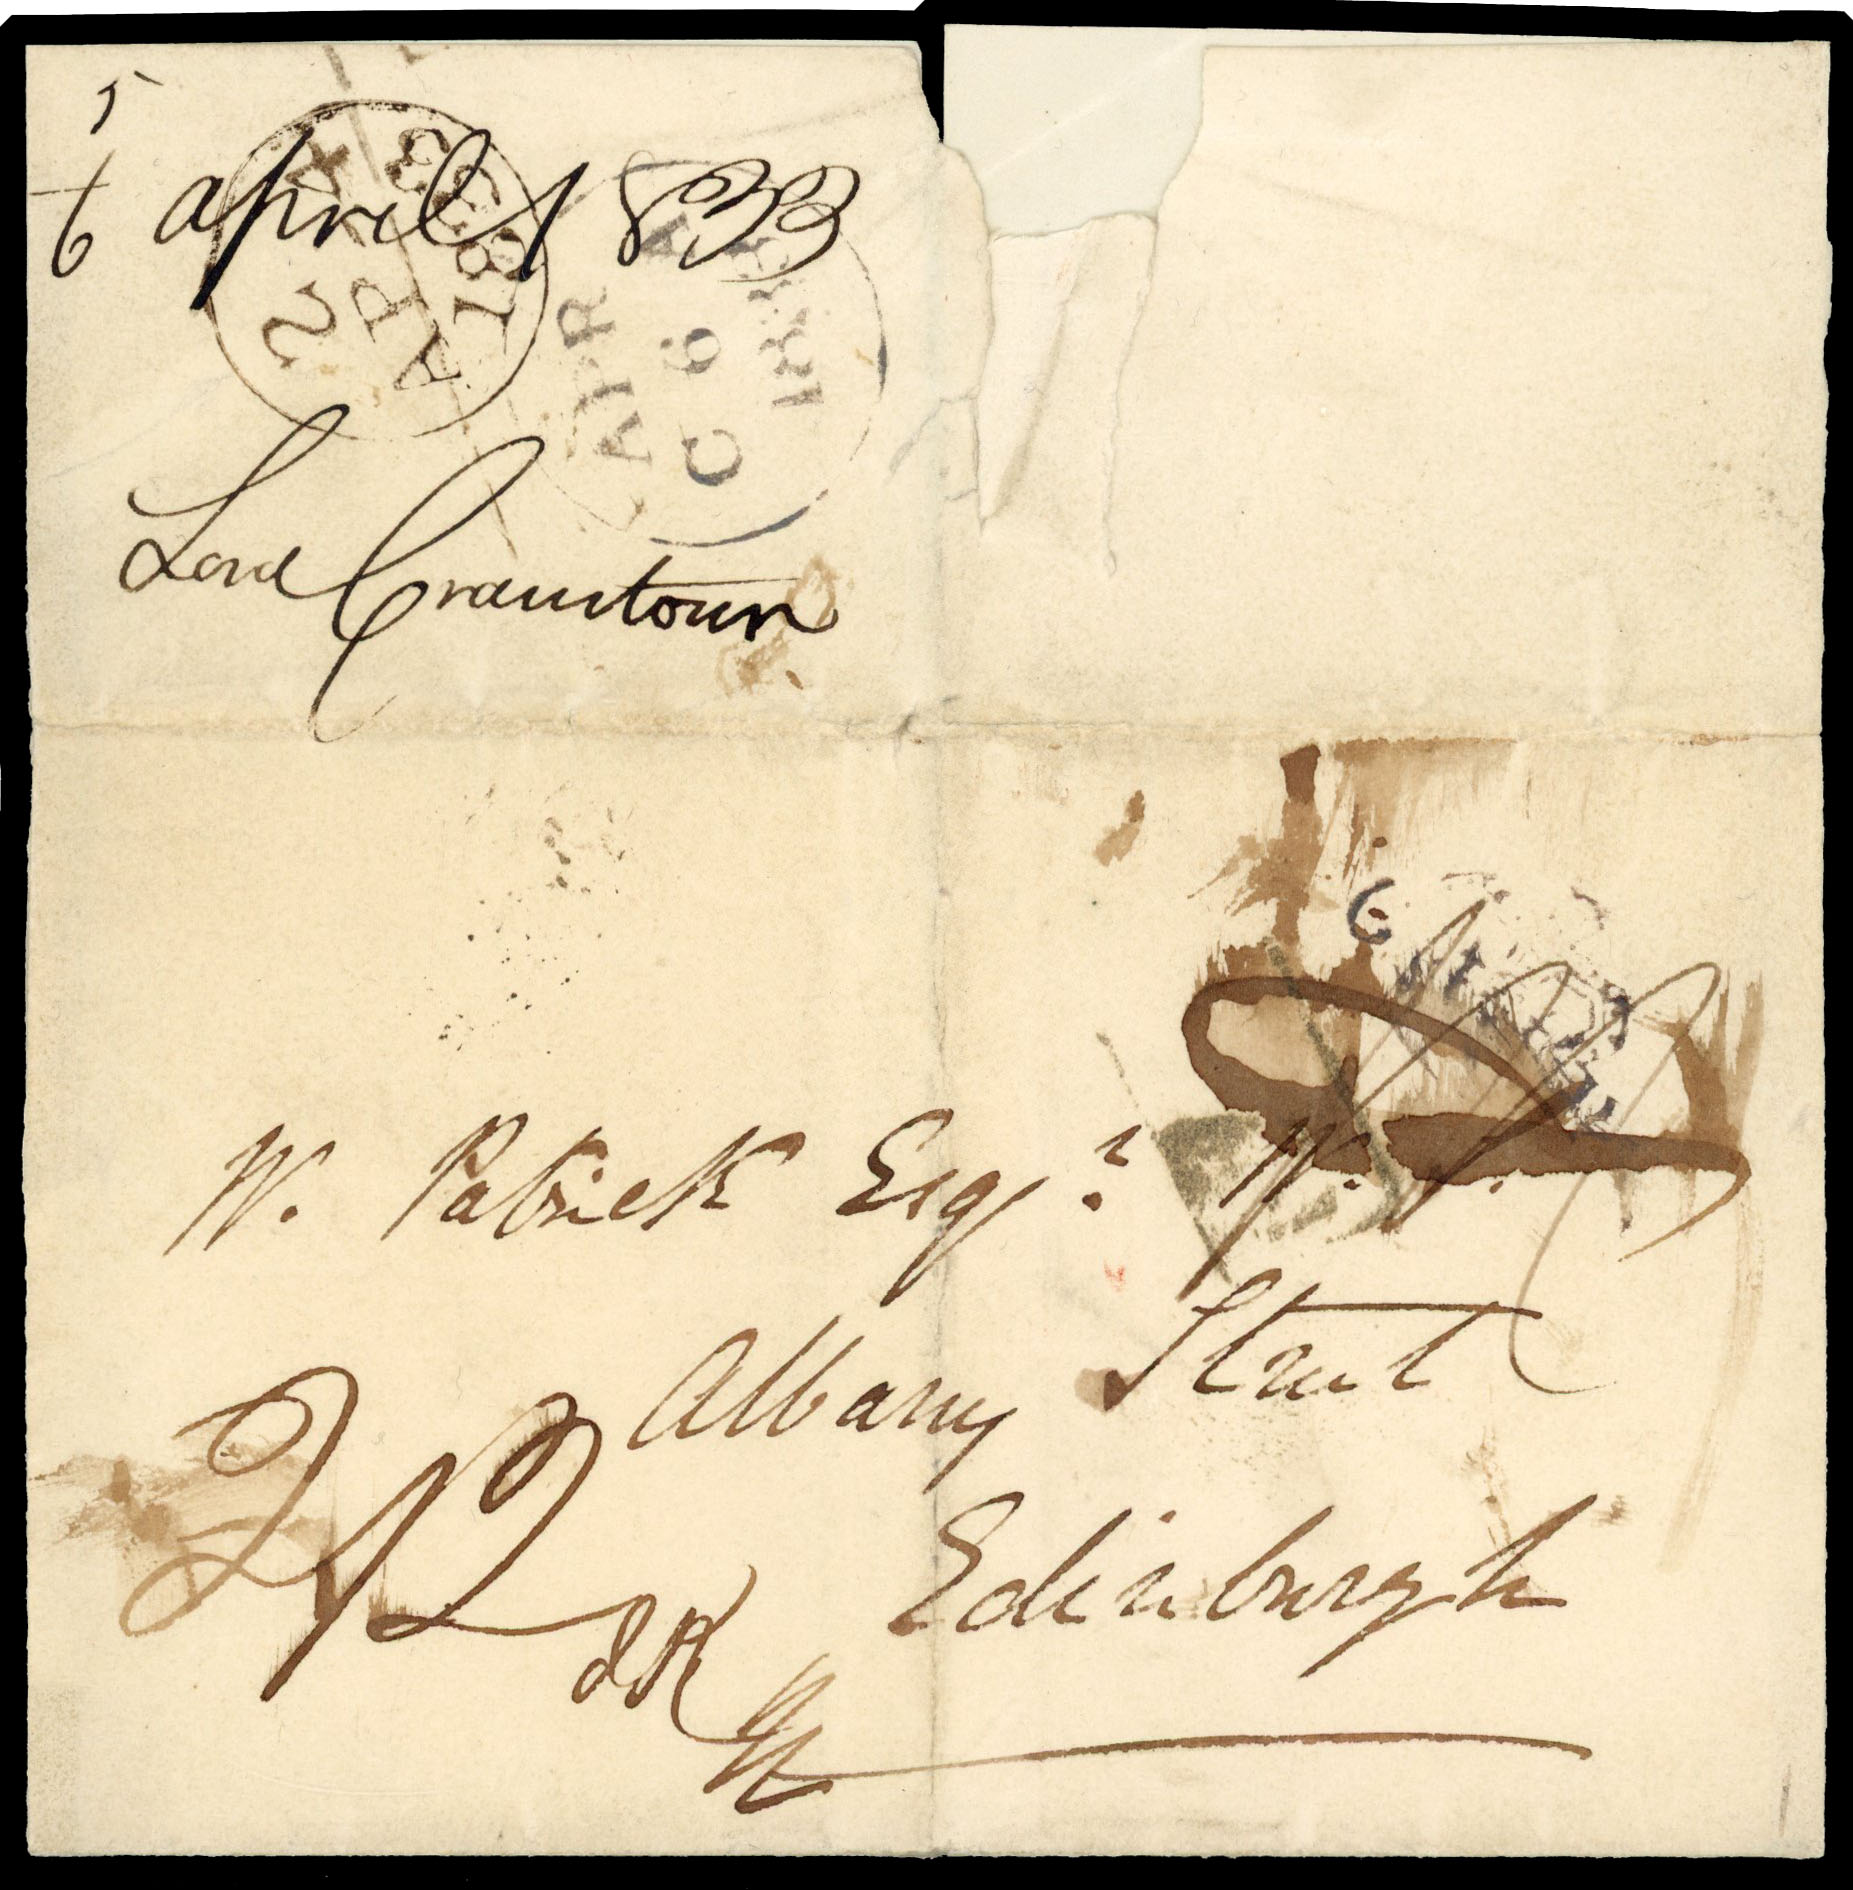 5
6 april 1833
2
AP
4
1833
APR A
C 6
Lord Cranstoun
W. Patrick Esqr. W. S.
Albany Street
Edinburgh